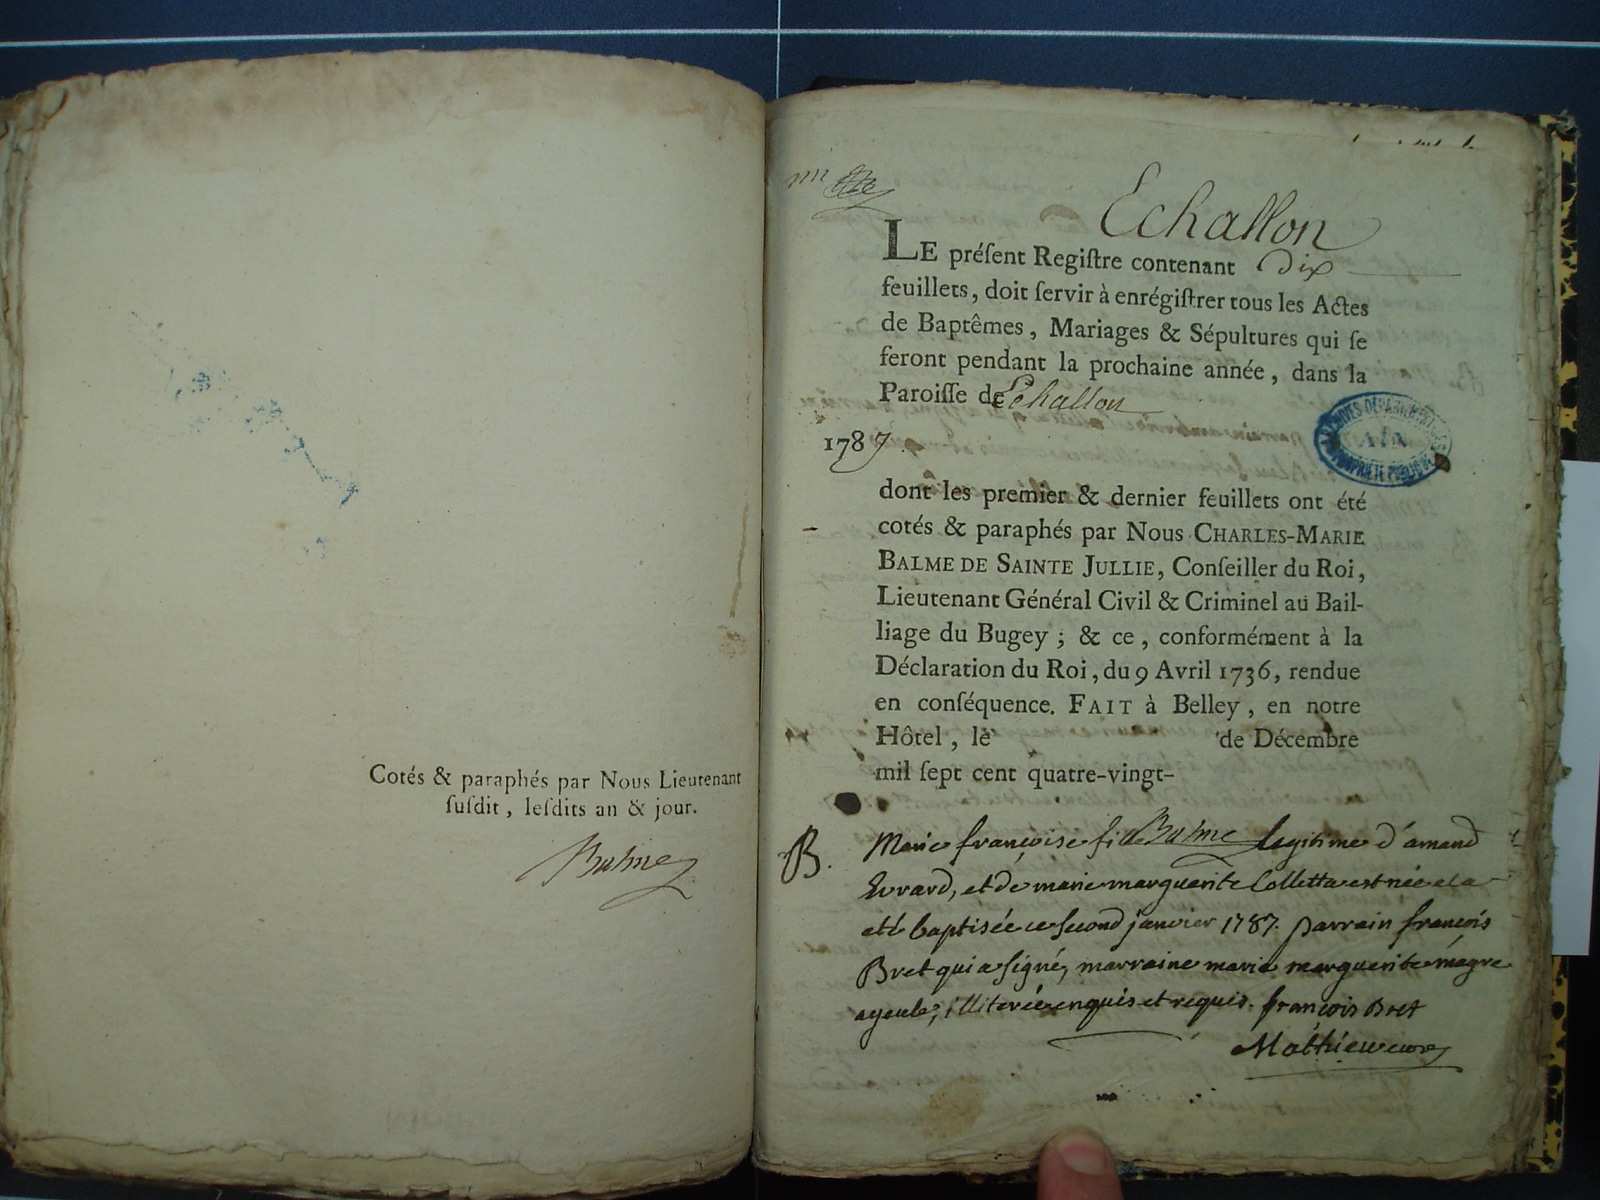 Cotés & paraphés par Nous Lieutenant
ſuſdit, leſdits an & jour.
Balme
Echallon
LE préſent Regiſtre contenant dix
feuillets, doit ſervir à enrégiſtrer tous les Actes
de Baptêmes, Mariages & Sépultures qui ſe
feront pendant la prochaine année, dans la
Paroiſſe de Echallon
1787
ARCHIVES DÉPARTEMENTALES
AIN
PROPRIÉTÉ PUBLIQUE
dont les premier & dernier feuillets ont été
cotés & paraphés par Nous CHARLES-MARIE
BALME DE SAINTE JULLIE, Conſeiller du Roi,
Lieutenant Général Civil & Criminel au Bail-
liage du Bugey; & ce, conformément à la
Déclaration du Roi, du 9 Avril 1736, rendue
en conſéquence. FAIT à Belley, en notre
Hôtel, le de Décembre
mil ſept cent quatre-vingt-
Balme
B. Marie françoise fille legitime d'amand
Evrard, et de marie marguerite Colletta est née et a
eté baptisée ce second janvier 1787. parrain françois
Bret qui a signé, marraine marie marguerite magre
ayeule, illiterée enquis et requis. françois Bret
Mathieu curé